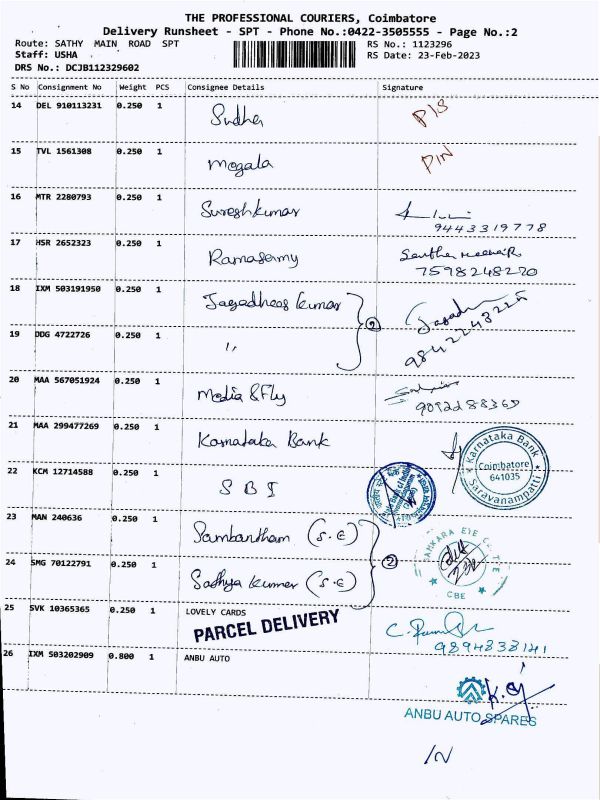 THE PROFESSIONAL COURIERS, Coimbatore
Delivery Runsheet - SPT - Phone No.:0422-3505555 - Page No.:2
Route: SATHY MAIN ROAD SPT RS No.: 1123296
Staff: USHA RS Date: 23-Feb-2023
DRS No.: DCJB112329602
S No Consignment No Weight PCS Consignee Details Signature
14 DEL 910113231 0.250 1 Sudha P/S
15 TVL 1561308 0.250 1 Mogala PIN
16 MTR 2280793 0.250 1 Sureshkumar
9443319778
17 HSR 2652323 0.250 1 Ramasamy
7598248270
18 IXM 503191950 0.250 1 Jagadhees kumar
2 9842248225
19 DDG 4722726 0.250 1 "
20 MAA 567051924 0.250 1 Media &Fly
21 MAA 299477269 0.250 1 Karnataka Bank
Karnataka Bank
Coimbatore
641035
Saravanampatti
22 KCM 12714588 0.250 1 SBI
23 MAN 240636 0.250 1 Sambantham (S.E)
2 SANKARA EYE
CBE
24 SMG 70122791 0.250 1 Sathya kumar (S.E)
25 SVK 10365365 0.250 1 LOVELY CARDS
PARCEL DELIVERY
9894838141
26 IXM 503202909 0.800 1 ANBU AUTO
ANBU AUTO SPARES